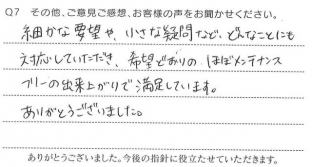 Q7 その他、ご意見ご感想、お客様の声をお聞かせください。
細かな要望や、小さな疑問など、どんなことにも
対応していただき、希望どおりの ほぼメンテナンス
フリーの出来上がりで満足しています。
ありがとうございました。
ありがとうございました。今後の指針に役立たせていただきます。